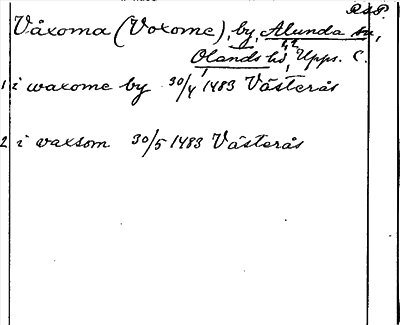 R&P.
Våxoma (Voxome), by, Alunda sn,
Olands hd, Upps. C.
1 i waxome by 30/4 1483 Västerås
2 i vaxsom 30/5 1483 Västerås